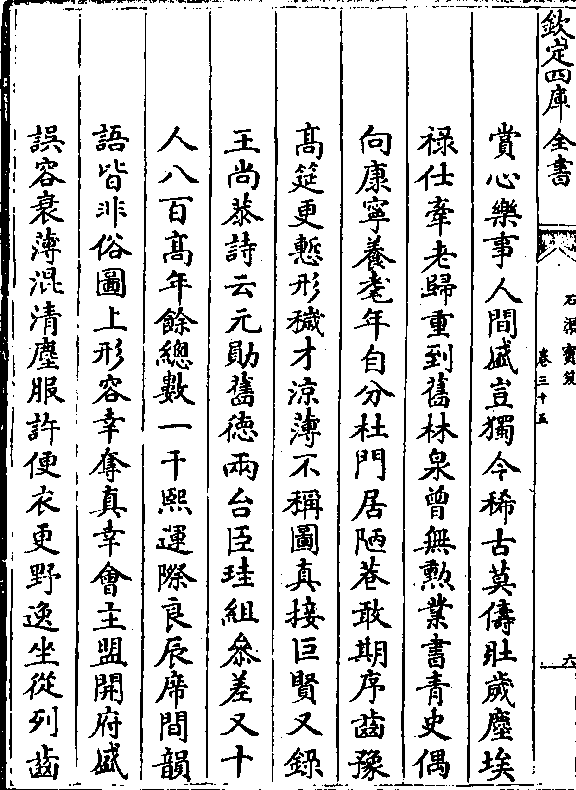 欽定四庫全書
石渠寶笈
卷三十五
六
賞心樂事人間盛豈獨今稀古莫儔壯歲塵埃
祿仕牽老歸重到舊林泉曾無勲業書青史偶
向康寧養耄年自分杜門居陋巷敢期序齒豫
髙筵更慙形穢才凉薄不稱圖真接巨賢又錄
王尚恭詩云元勛舊徳兩台臣珪組叅差又十
人八百髙年餘總數一千熙運際良辰席間韻
語皆非俗圖上形容幸奪真幸會主盟開府盛
誤容衰薄混清塵服許便衣更野逸坐從列齒